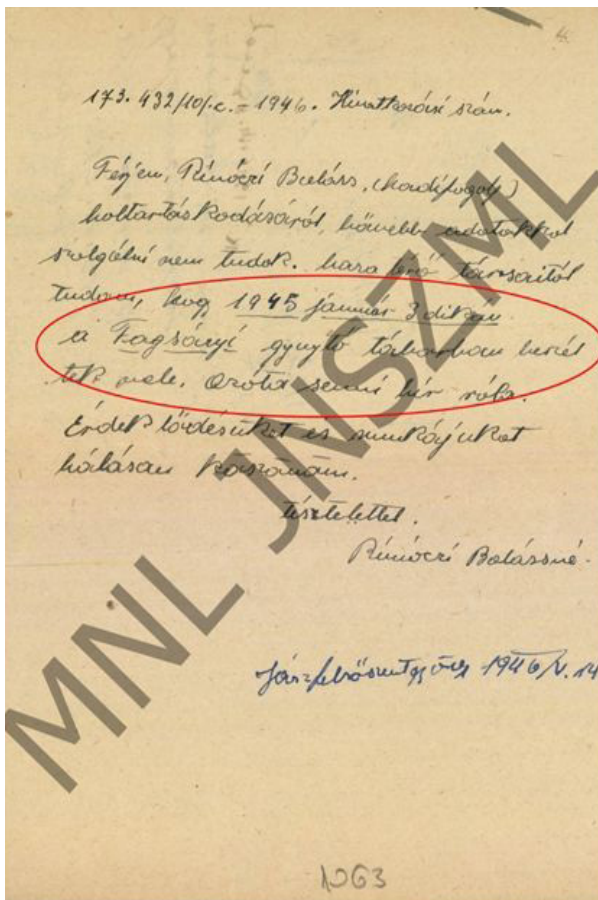 4.
173.432/10/.c. – 1946. Hivatkozási szám.
Férjem, Rimóczi Balázs, (hadifogoly)
holtartáskodásáról, bővebb adatokkal
szolgálni nem tudok. haza térő társaitól
tudom, hogy 1945 január 3dikán
a Fogsányi gyujtő táborban beszél
tek vele. Azóta semmi hír róla.
Érdeklődésüket és munkájukat
hálásan köszönöm.
tisztelettel.
Rimóczi Balázsné.
Jászfelsőszentgyörgy 1946/V. 14
1063
MNL JNSZML